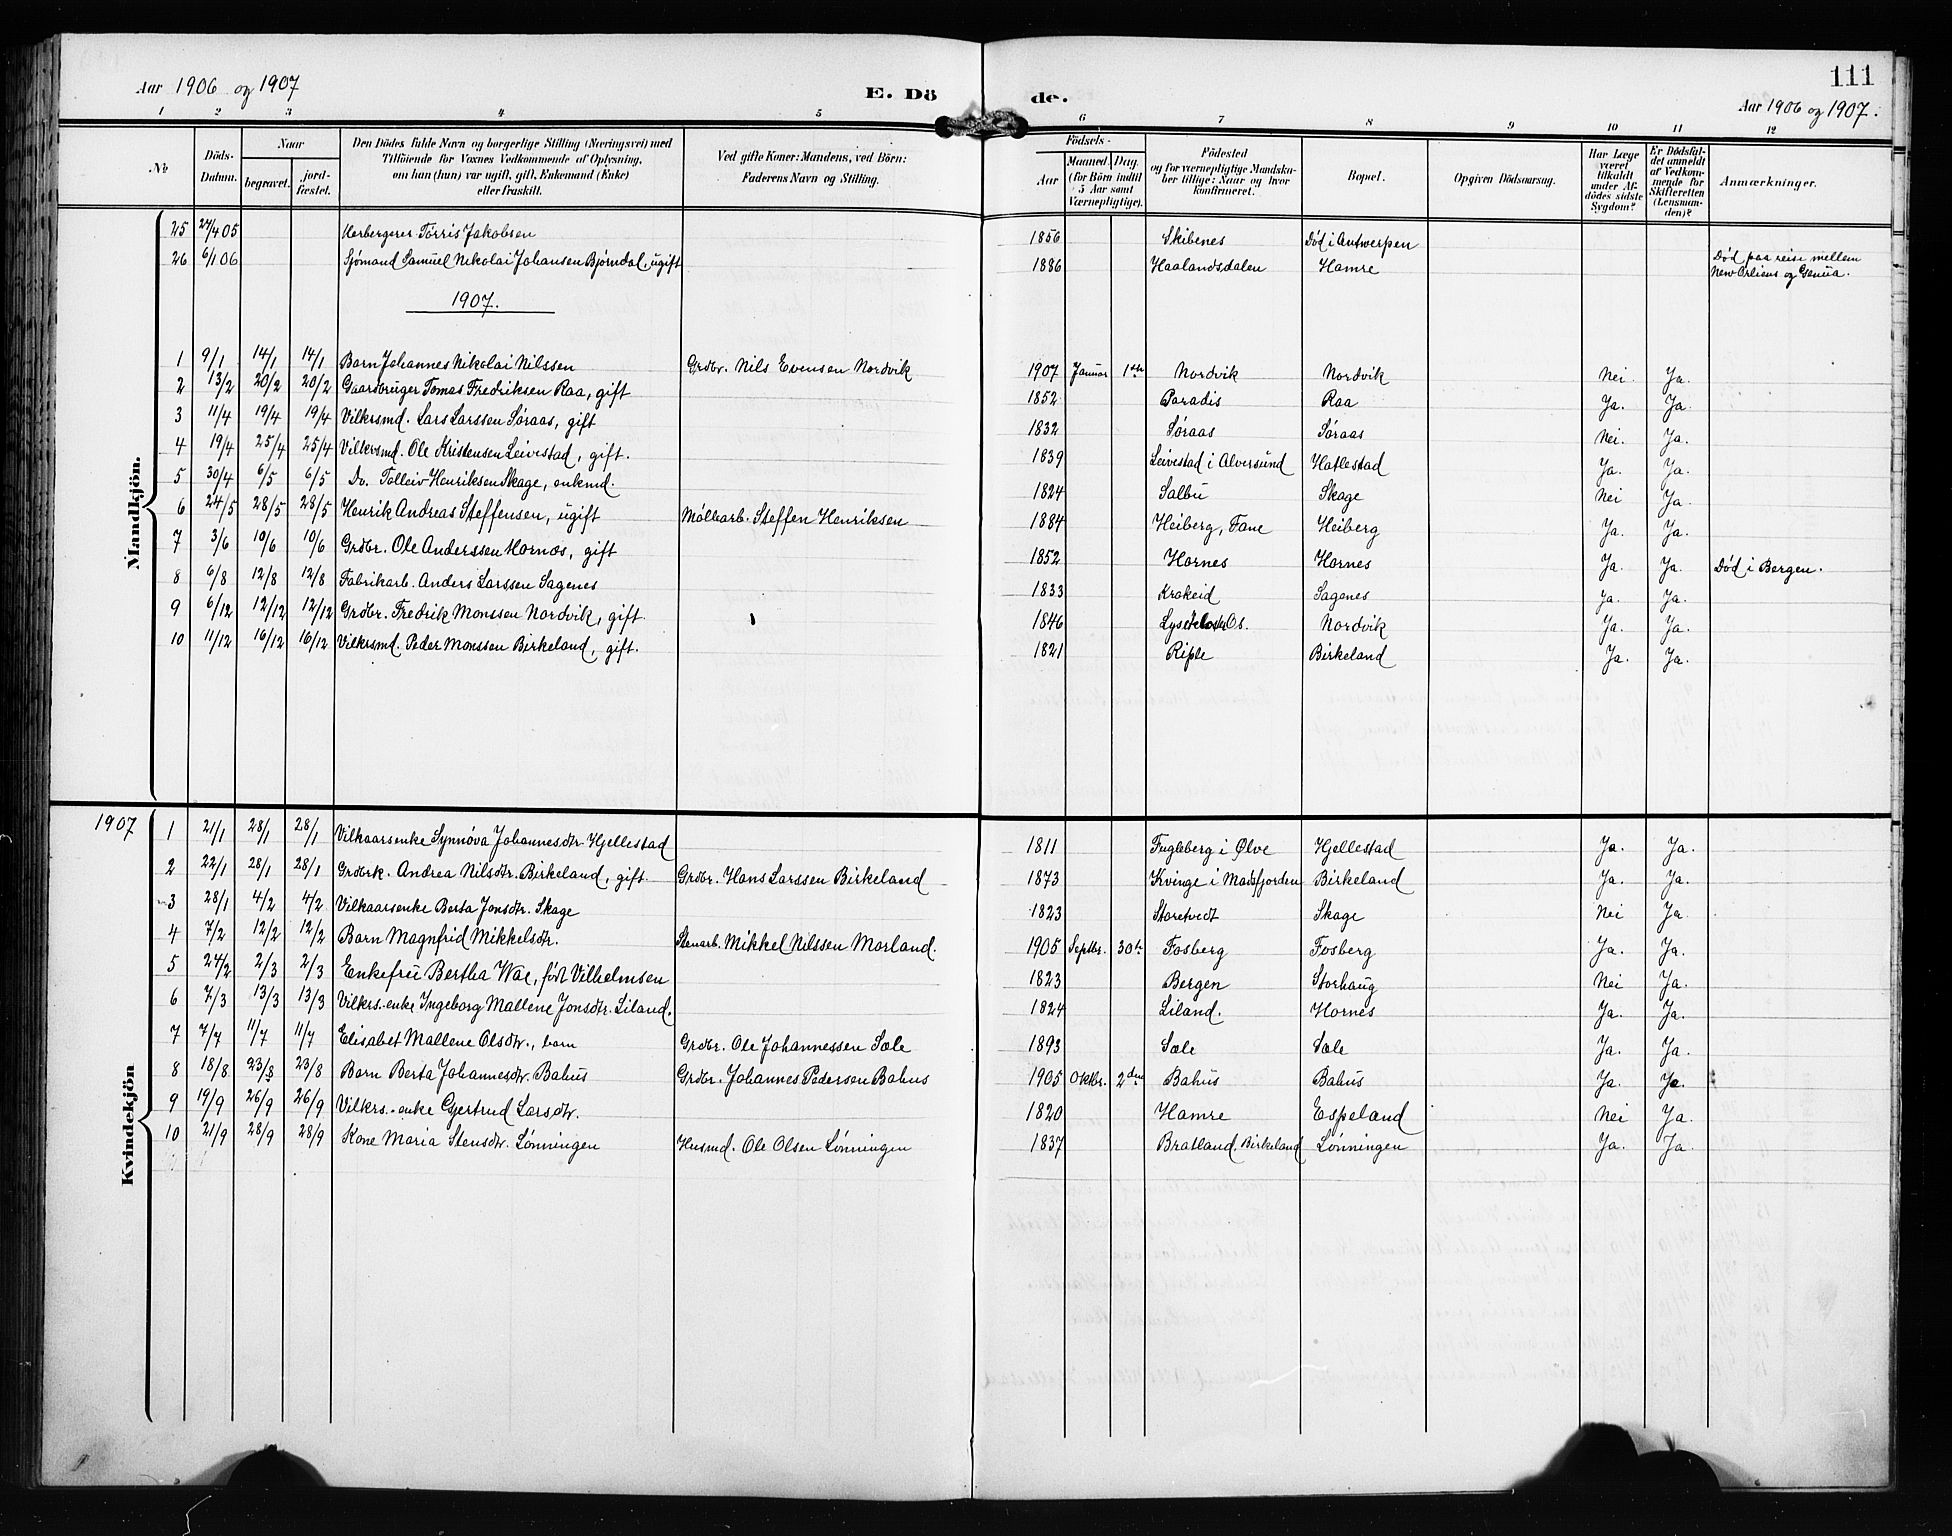 111
Aar 1906 og 1907
E. Dö de.
Aar 1906 og 1907.
1 2 3 4 5 6 7 8 9 10 11 12
No
Döds-Datum.
Naar
begravet.
jord-fæstet.
Den Dödes fulde Navn og borgerlige Stilling (Næringsvei) med
Tilföiende for Voxnes Vedkommende af Oplysning,
om han (hun) var ugift, gift, Enkemand (Enke)
eller fraskilt.
Ved gifte Koner: Mandens, ved Börn:
Faderens Navn og Stilling.
Födsels-
Aar
Maaned. Dag.
(for Börn indtil
5 Aar samt
Værnepligtige).
Födested
og for værnepligtige Mandska-
ber tillige: Naar og hvor
konfirmeret.
Bopæl.
Opgiven Dödsaarsag.
Har Læge
været
tilkaldt
under Af-
dödes sidste
Sygdom?
Er Dödsfal-
det anmeldt
af Vedkom-
mende for
Skifteretten
(Lensman-
den)?
Anmærkninger.
Mandkjön.
25 24/4 05 Herbergerer Tørris Jakobsen 1856 Skibenes Død i Antwerpen
26 6/1 06 Sjømand Samuel Nikolai Johansen Bjørndal, ugift 1886 Haalandsdalen Hamre Død paa reise mellem
New Orliens og Genua.
1907.
1 9/1 14/1 14/1 Barn Johannes Nikolai Nilssen Grdbr. Nils Evensen Nordvik 1907 Januar 1ste Nordvik Nordvik Nei. Ja.
2 13/2 20/2 20/2 Gaardbruger Tomas Fredriksen Raa, gift 1852 Paradis Raa Ja. Ja.
3 11/4 19/4 19/4 Vilkrsmd. Lars Larssen Søraas, gift 1832 Søraas Søraas Nei. Ja.
4 19/4 25/4 25/4 Vilkrsmd. Ole Kristensen Leivestad, gift. 1839 Leivestad i Alversund Hatlestad Ja. Ja.
5 30/4 6/5 6/5 Do. Tolleiv Henriksen Skage, enkmd. 1824 Salbu Skage Nei Ja.
6 24/5 28/5 28/5 Henrik Andreas Steffensen, ugift Møllearb. Steffen Henriksen 1884 Heiberg, Fane Heiberg Ja. Ja.
7 3/6 10/6 10/6 Grdbr. Ole Anderssen Hornes, gift 1852 Hornes Hornes Ja. Ja. Død i Bergen.
8 6/8 12/8 12/8 Fabrikarb. Anders Larssen Sagenes 1833 Krokeid Sagenes Ja. Ja.
9 6/12 12/12 12/12 Grdbr. Fredrik Monssen Nordvik, gift. 1846 Lysekloster Os. Nordvik Ja. Ja.
10 11/12 16/12 16/12 Vilkrsmd. Peder Monssen Birkeland, gift. 1821 Riple Birkeland Ja. Ja.
Kvindekjön
1907 1 21/1 28/1 28/1 Vilkaarsenke Synnøva Johannesdtr. Hjellestad 1811 Fugleberg i Ølve Hjellestad Ja. Ja.
2 22/1 28/1 28/1 Grdbrk. Andrea Nilsdtr. Birkeland, gift Grdbr. Hans Larssen Birkeland 1873 Kvinge i Masfjorden Birkeland Ja. Ja.
3 28/1 4/2 4/2 Vilkaarsenke Berta Jonsdtr. Skage 1823 Storetvedt Skage Nei Ja
4 7/2 12/2 12/2 Barn Magnfrid Mikkelsdtr. Stenarb. Mikkel Nilssen Morland. 1905 Septbr. 30te Fosberg Fosberg Ja. Ja.
5 24/2 2/3 2/3 Enkefru Bertha Wae, født Vilhelmsen 1823 Bergen Storhaug Nei Ja.
6 7/3 13/3 13/3 Vilkrs.-enke Ingeborg Mallene Jonsdtr. Liland. 1824 Liland. Hornes Ja. Ja.
7 7/4 11/7 11/7 Elisabet Mallene Olsdtr., barn Grdbr. Ole Johannessen Sæle 1893 Sæle Sæle Ja. Ja.
8 18/8 23/8 23/8 Barn Berta Johannesdtr. Bahus Grdbr. Johannes Pedersen Bahus 1905 Oktbr. 2den Bahus Bahus Ja. Ja.
9 19/9 26/9 26/9 Vilkrs.-enke Gjertrud Larsdtr. 1820 Hamre Espeland Nei Ja.
10 21/9 28/9 28/9 Kone Maria Stensdtr. Lønningen Husmd. Ole Olsen Lønningen 1837 Bratland, Birkeland Lønningen Ja. Ja.